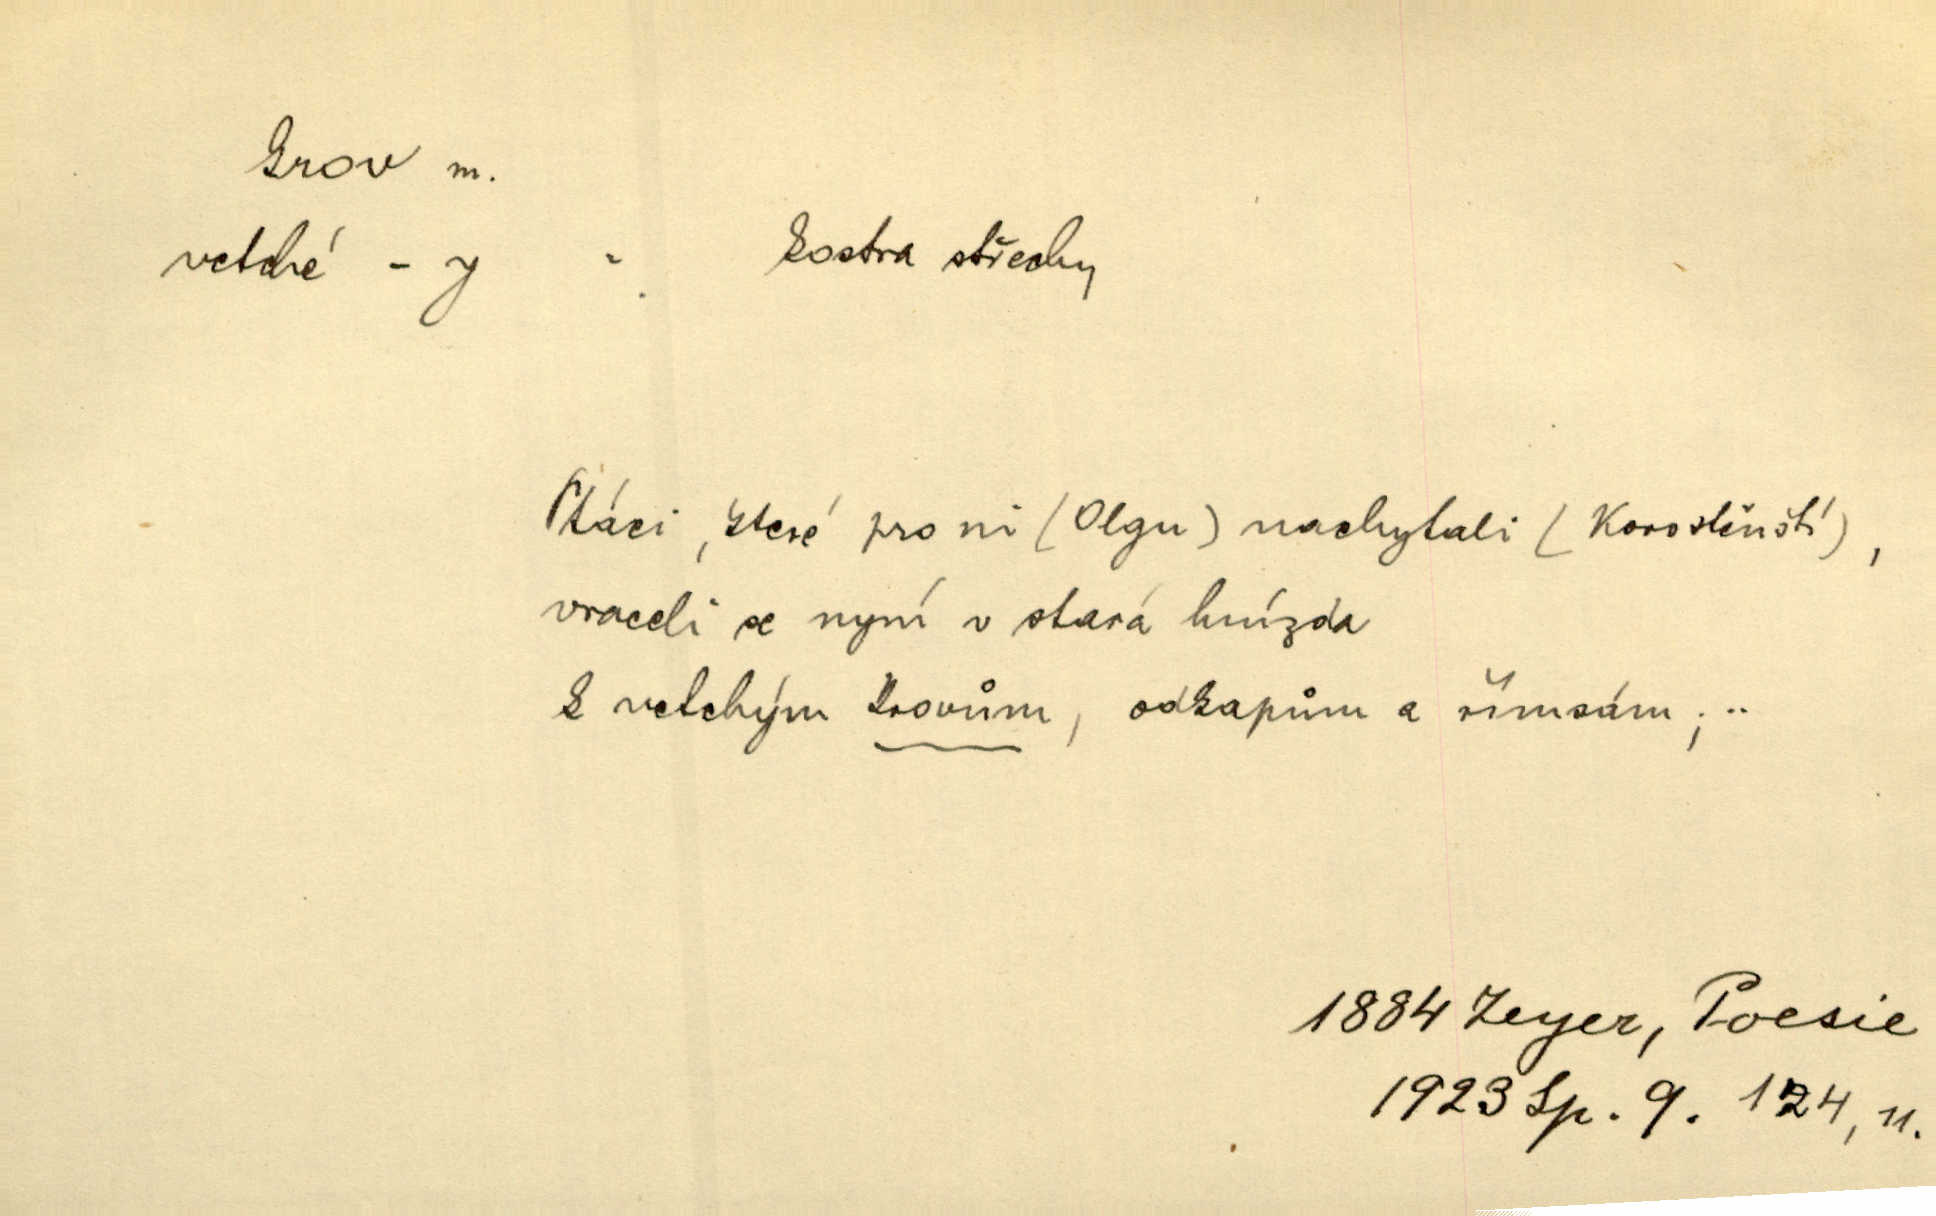 krov m.
vetché - y - kostra střechy
Ptáci, které pro ni (Olgu) nachytali (Korostěnští),
vraceli se nyní v stará hnízda
k vetchým krovům, odkapům a římsám; ..
1884 Zeyer, Poesie
1923 Sp. 9. 124, 11.